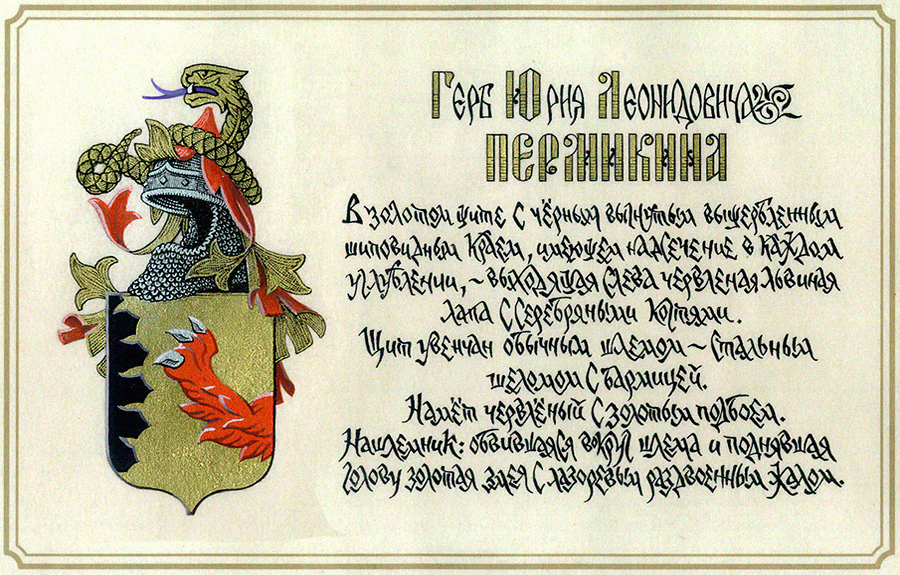 Герб Юрия Леонидовича
Пермикина
В золотом щите с чёрным выгнутым выщербленным
шиповидным краем, имеющем надсечение в каждом
углублении, ~ выходящая слева червленая львиная
лапа с серебряными когтями.
Щит увенчан обычным шлемом ~ стальным
шеломом с бармицей.
Намёт червлёный с золотым подбоем.
Нашлемник: обвившаяся вокруг шлема и поднявшая
голову золотая змея с лазоревым раздвоенным жалом.